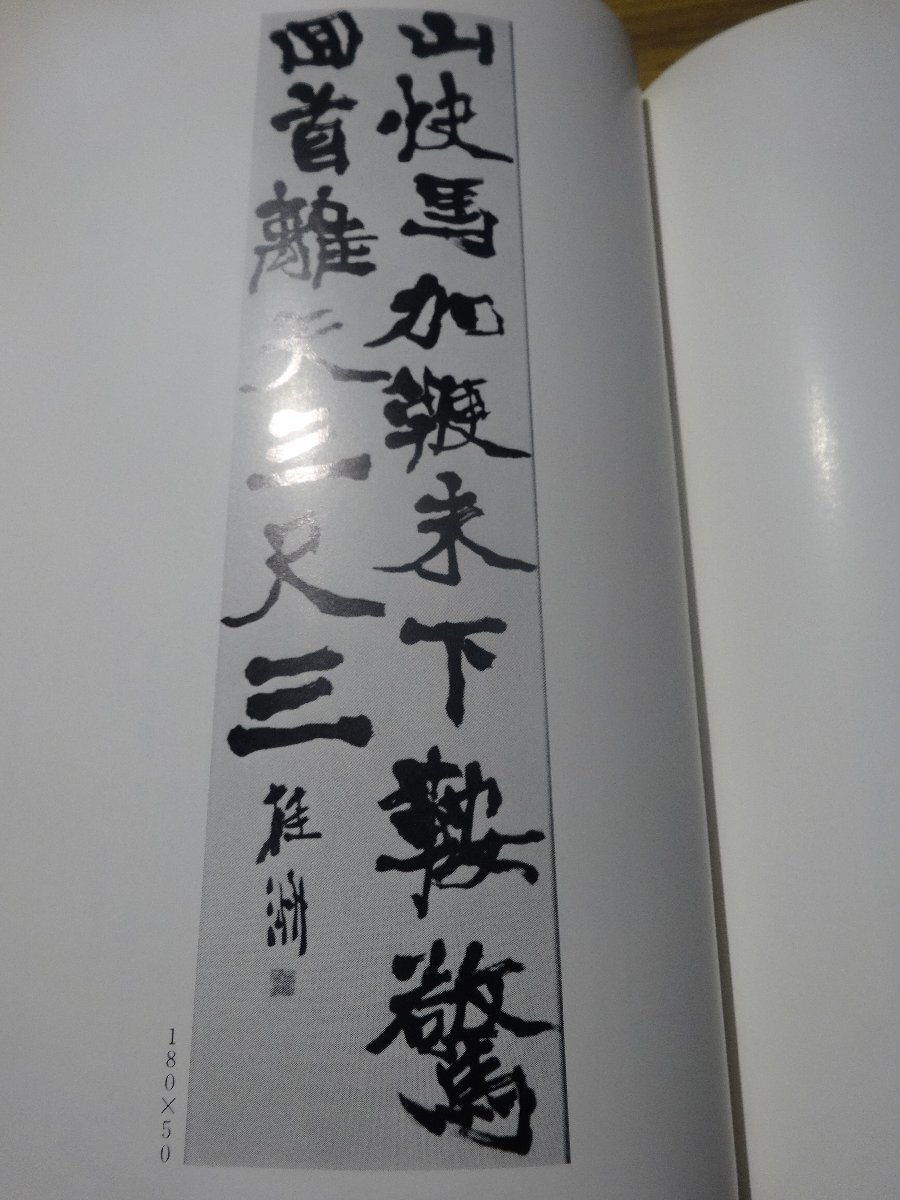 山快馬加鞭未下鞍驚
回首離天三尺三
桂洲
180×50